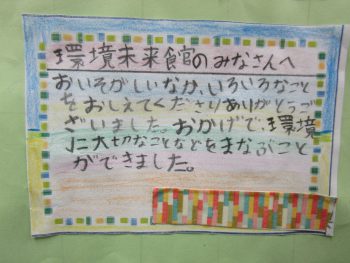 環境未来館のみなさんへ
おいそがしいなか、いろいろなこと
をおしえてくださりありがとうご
ざいました。おかげで、環境
に大切なことなどをまなぶこと
ができました。